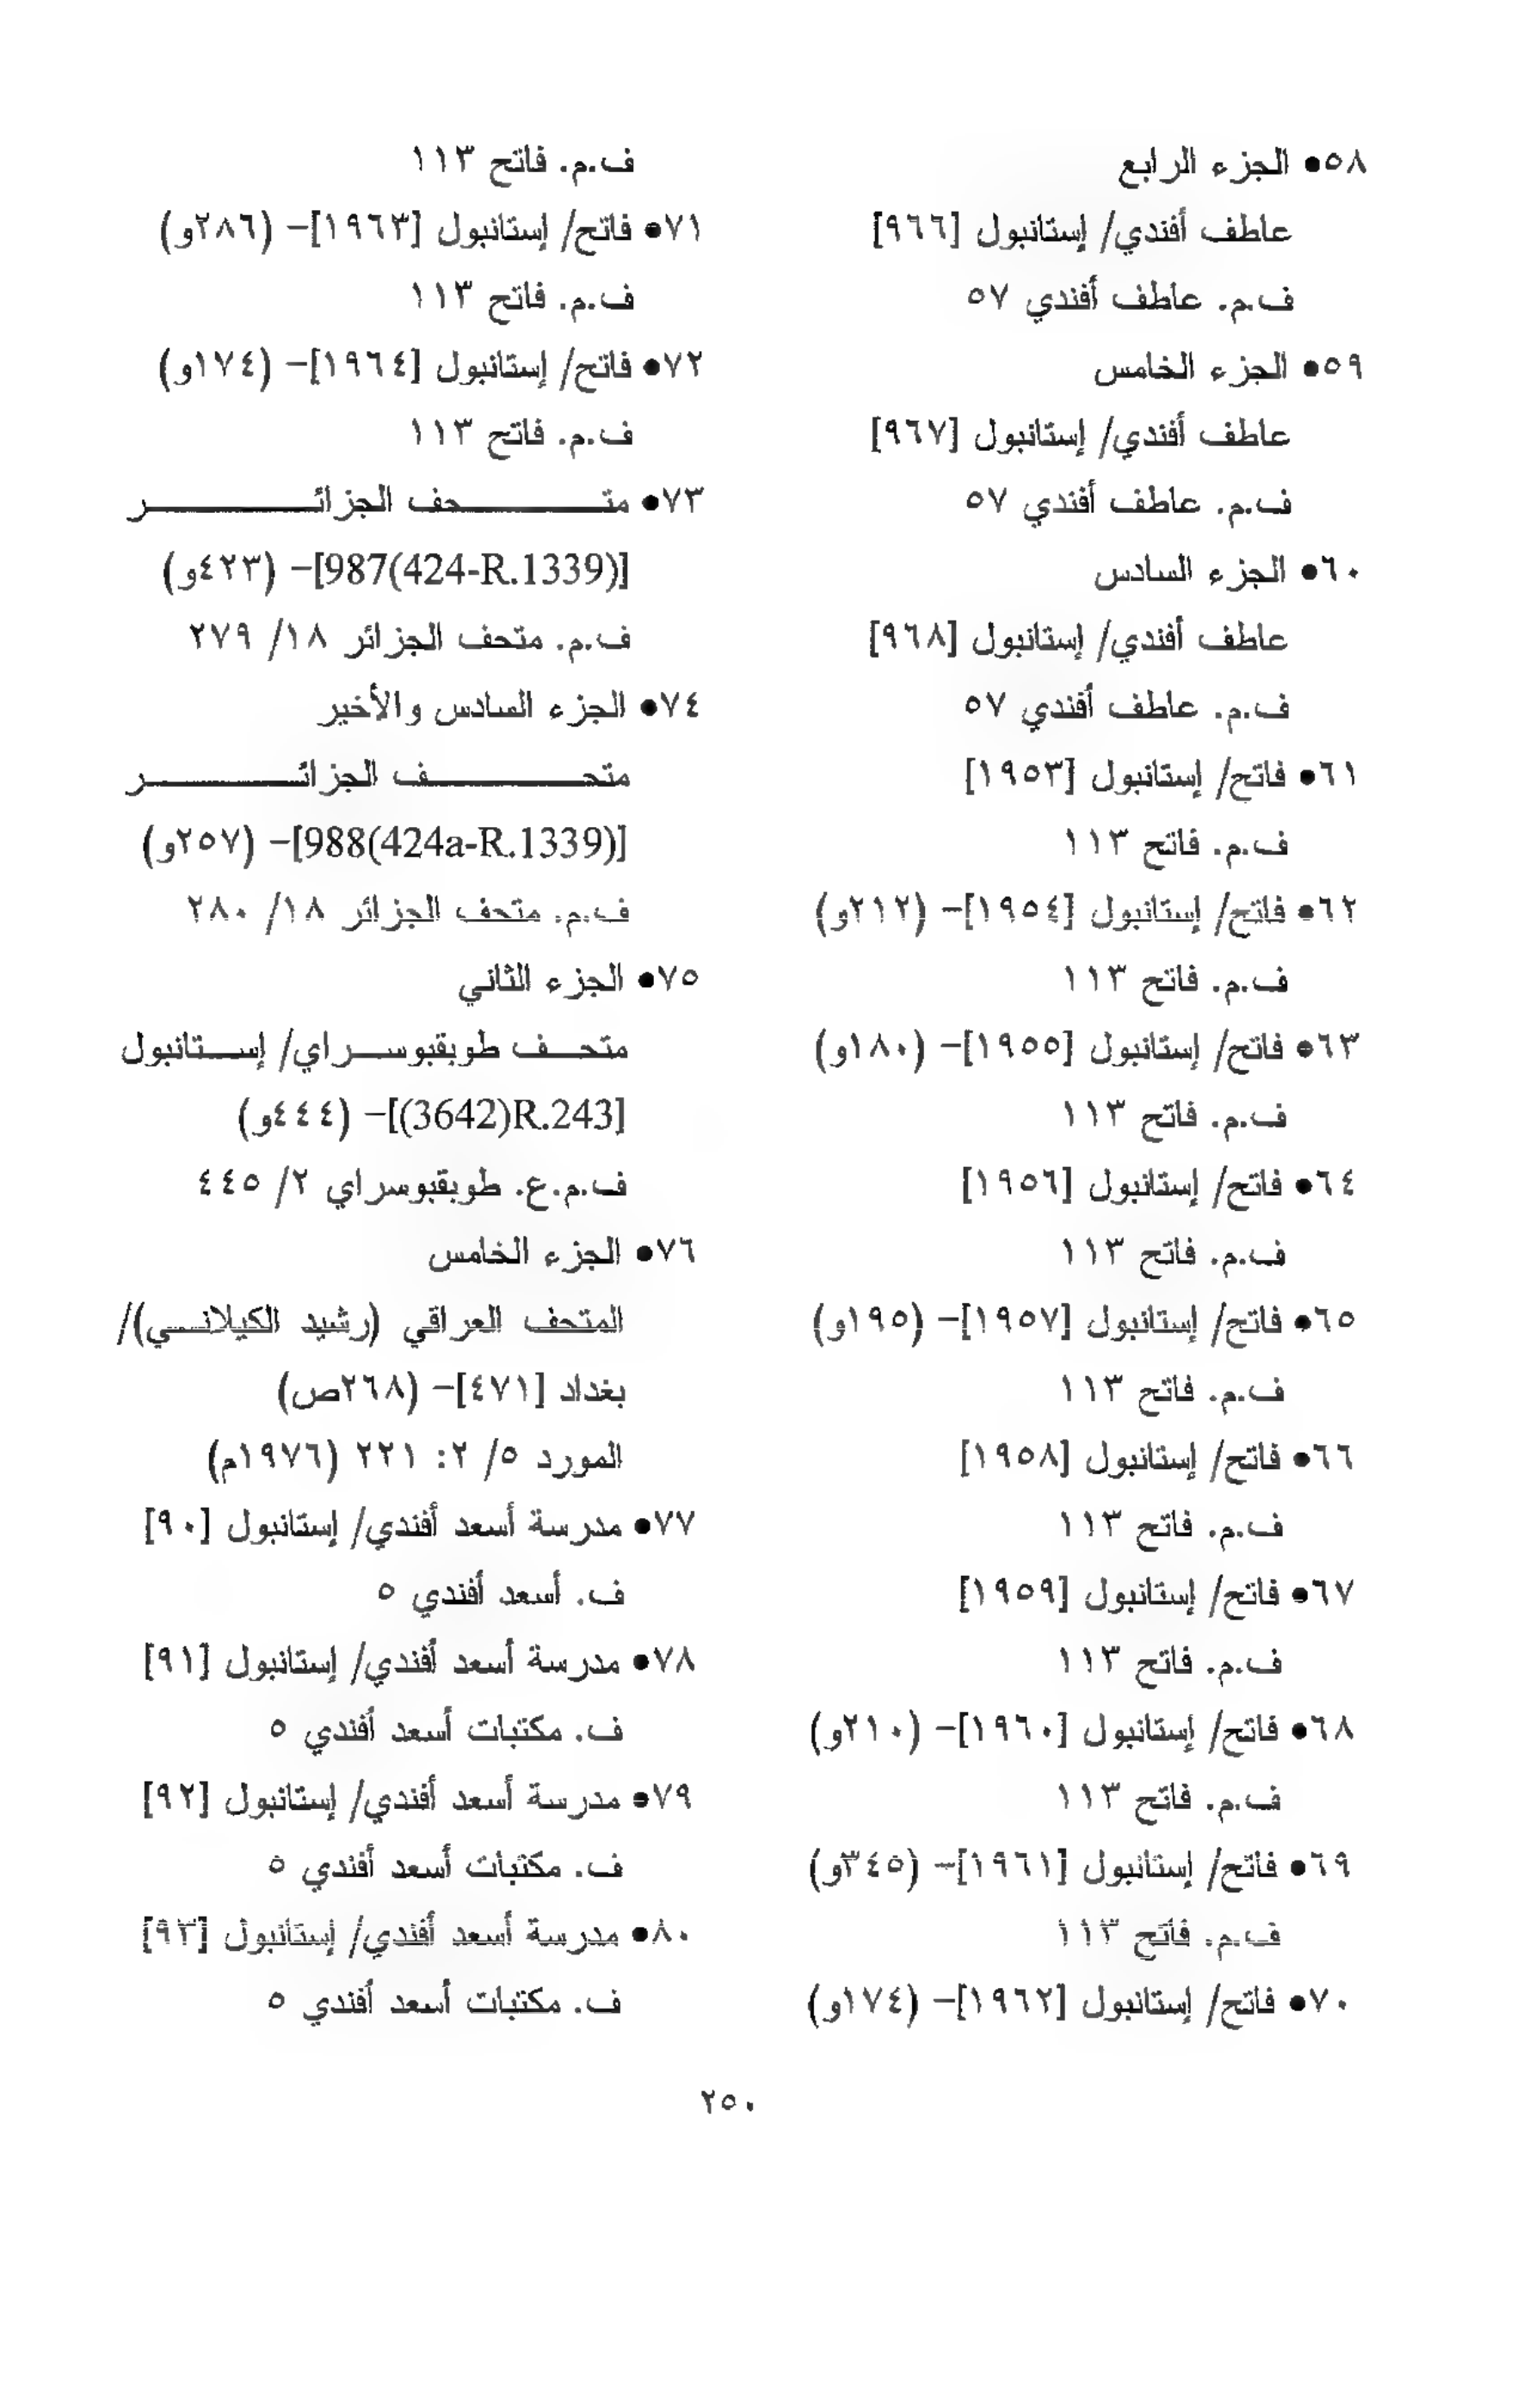 ٥٨● الجزء الرابع
عاطف أفندي/ إستانبول [٩٦٦]
ف.م. عاطف أفندي ٥٧
٥٩● الجزء الخامس
عاطف أفندي/ إستانبول [٩٦٧]
ف.م. عاطف أفندي ٥٧
٦٠● الجزء السادس
عاطف أفندي/ إستانبول [٩٦٨]
ف.م. عاطف أفندي ٥٧
٦١● فاتح/ إستانبول [١٩٥٣]
ف.م. فاتح ١١٣
٦٢● فاتح/ إستانبول [١٩٥٤]- (٢١٢و)
ف.م. فاتح ١١٣
٦٣● فاتح/ إستانبول [١٩٥٥]- (١٨٠و)
ف.م. فاتح ١١٣
٦٤● فاتح/ إستانبول [١٩٥٦]
ف.م. فاتح ١١٣
٦٥● فاتح/ إستانبول [١٩٥٧]- (١٩٥و)
ف.م. فاتح ١١٣
٦٦● فاتح/ إستانبول [١٩٥٨]
ف.م. فاتح ١١٣
٦٧● فاتح/ إستانبول [١٩٥٩]
ف.م. فاتح ١١٣
٦٨● فاتح/ إستانبول [١٩٦٠]- (٢١٠و)
ف.م. فاتح ١١٣
٦٩● فاتح/ إستانبول [١٩٦١]- (٣٤٥و)
ف.م. فاتح ١١٣
٧٠● فاتح/ إستانبول [١٩٦٢]- (١٧٤و)
ف.م. فاتح ١١٣
٧١● فاتح/ إستانبول [١٩٦٣]- (٢٨٦و)
ف.م. فاتح ١١٣
٧٢● فاتح/ إستانبول [١٩٦٤]- (١٧٤و)
ف.م. فاتح ١١٣
٧٣● متـــــحف الجزائـــــر
[987(424-R.1339)]- (٤٢٣و)
ف.م. متحف الجزائر ١٨/ ٢٧٩
٧٤● الجزء السادس والأخير
متحـــــف الجزائـــــر
[988(424a-R.1339)]- (٢٥٧و)
ف.م. متحف الجزائر ١٨/ ٢٨٠
٧٥● الجزء الثاني
متحـــف طوبقبوســـراي/ إســـتانبول
[(3642)R.243]- (٤٤٤و)
ف.م.ع. طوبقبوسراي ٢/ ٤٤٥
٧٦● الجزء الخامس
المتحف العراقي (رشيد الكيلانـــي)/
بغداد [٤٧١]- (٢٦٨ص)
المورد ٥/ ٢: ٢٢١ (١٩٧٦م)
٧٧● مدرسة أسعد أفندي/ إستانبول [٩٠]
ف. أسعد أفندي ٥
٧٨● مدرسة أسعد أفندي/ إستانبول [٩١]
ف. مكتبات أسعد أفندي ٥
٧٩● مدرسة أسعد أفندي/ إستانبول [٩٢]
ف. مكتبات أسعد أفندي ٥
٨٠● مدرسة أسعد أفندي/ إستانبول [٩٣]
ف. مكتبات أسعد أفندي ٥
٢٥٠